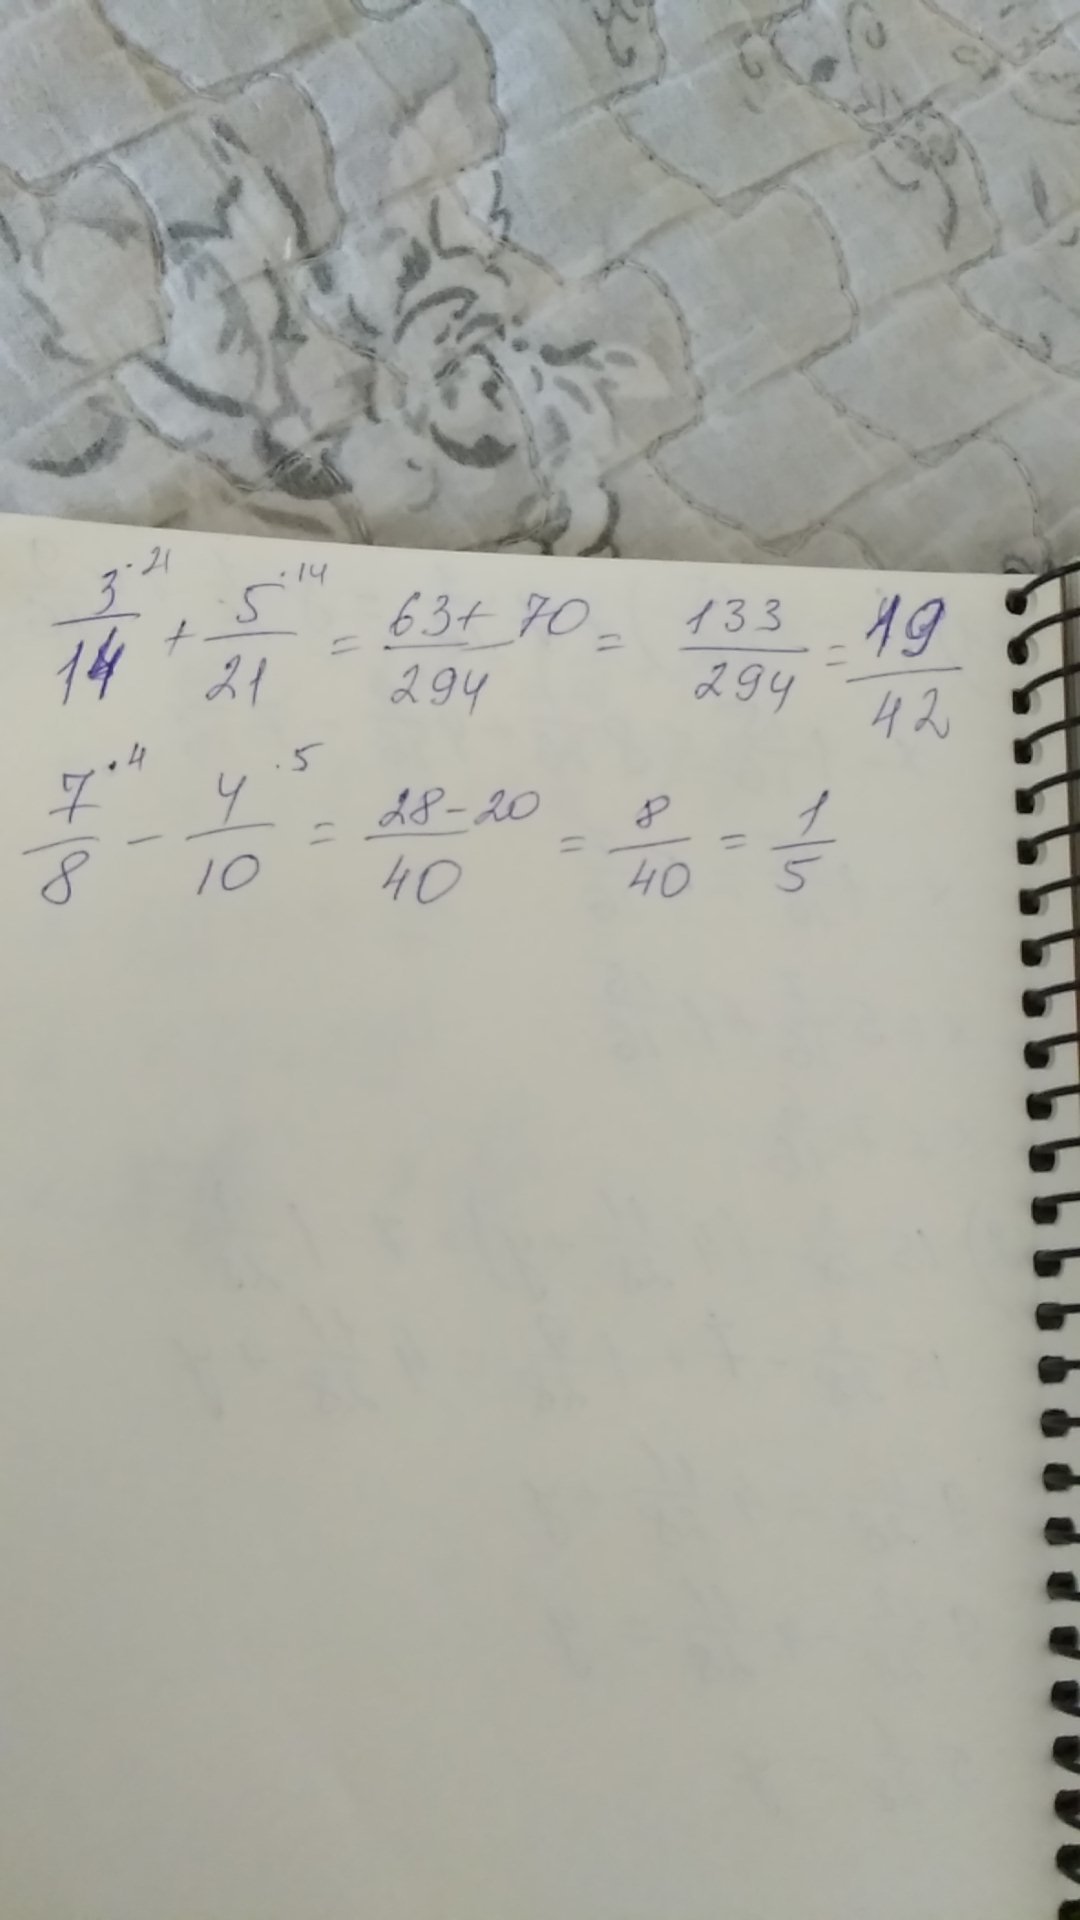 3·21/14 + 5·14/21 = 63+70/294 = 133/294 = 19/42
7·4/8 − 4·5/10 = 28−20/40 = 8/40 = 1/5